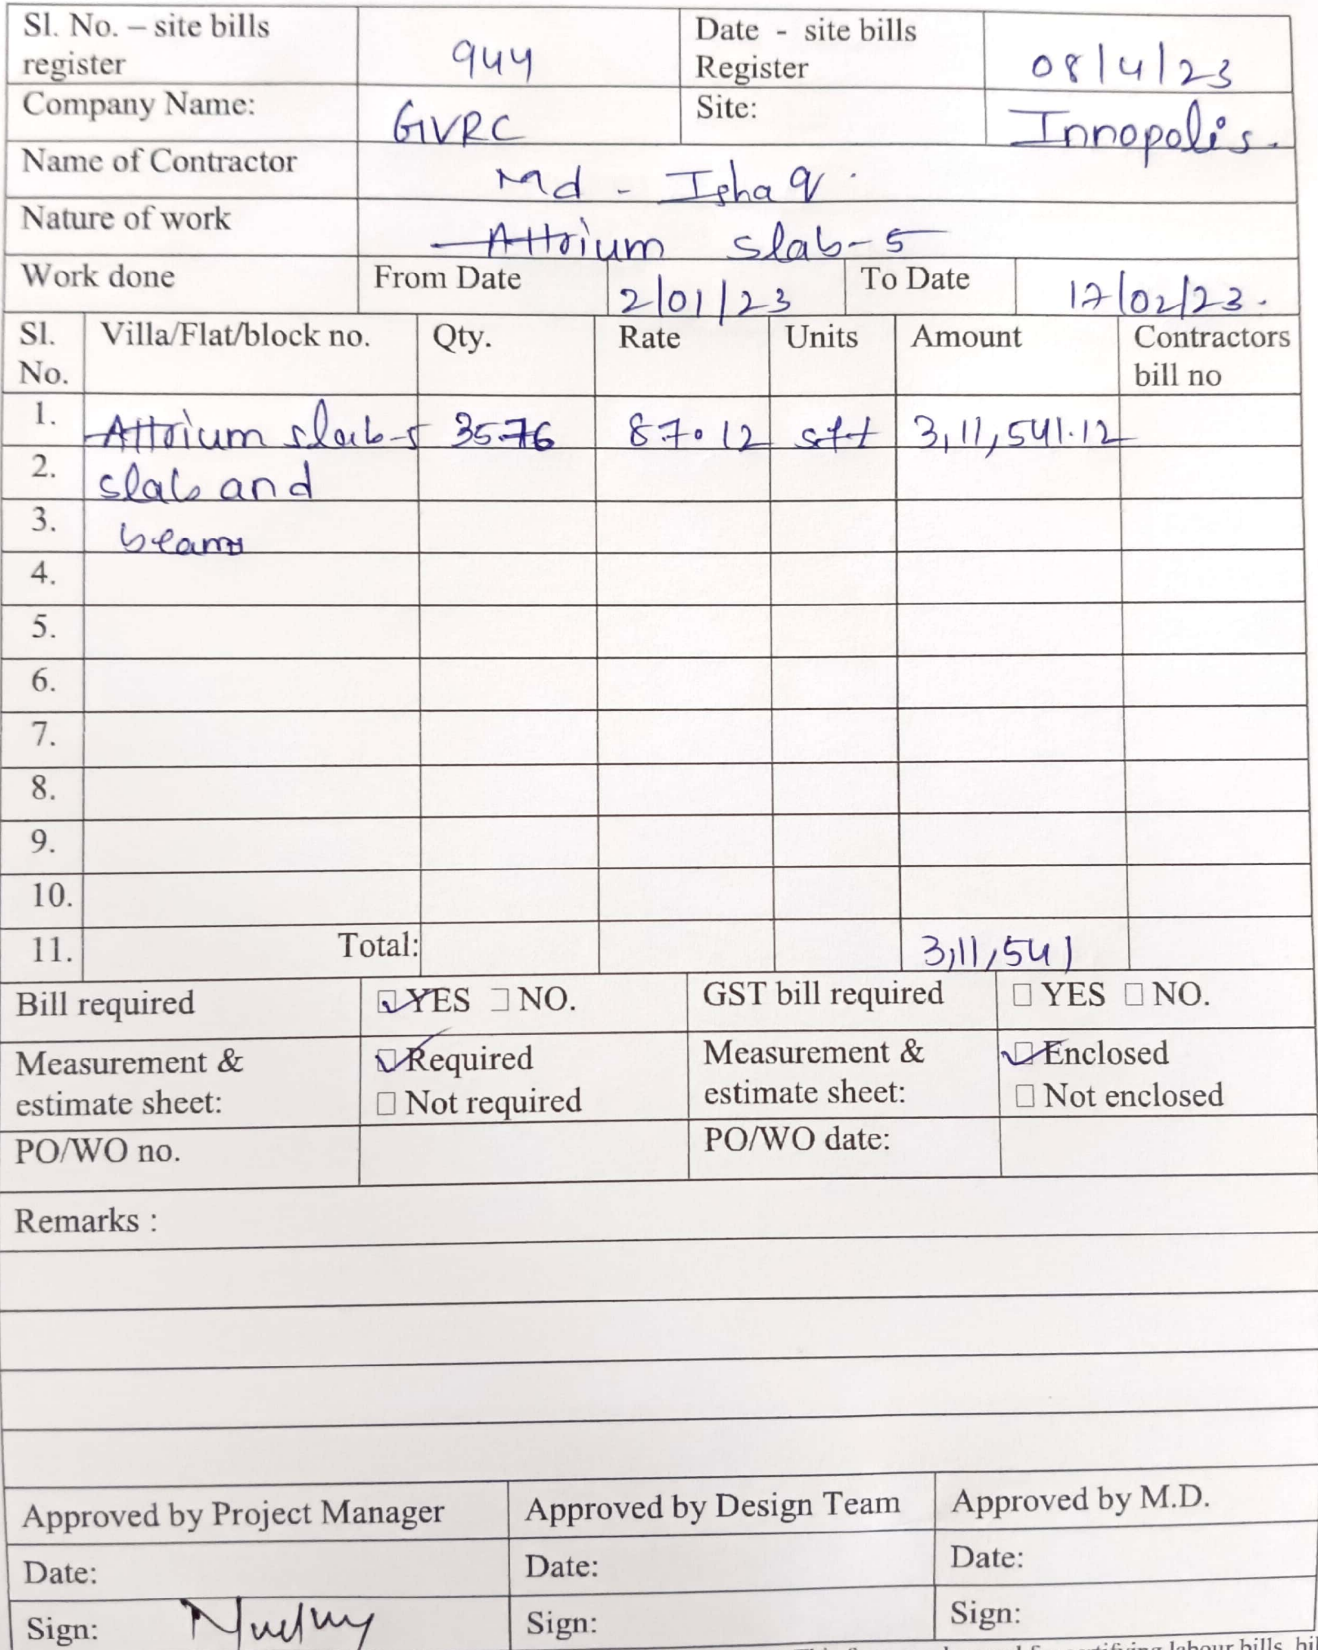 Sl. No. – site bills register 944 Date - site bills Register 08/4/23
Company Name: GVRC Site: Innopolis.
Name of Contractor Md - Ishaq.
Nature of work Attrium slab-5
Work done From Date 2/01/23 To Date 17/02/23.
Sl. No. Villa/Flat/block no. Qty. Rate Units Amount Contractors bill no
1. Attrium slab-5 3576 87.12 sft 3,11,541.12
2. slab and
3. beams
4.
5.
6.
7.
8.
9.
10.
11. Total: 3,11,541
Bill required YES NO. GST bill required YES NO.
Measurement & estimate sheet: Required Not required Measurement & estimate sheet: Enclosed Not enclosed
PO/WO no. PO/WO date:
Remarks :
Approved by Project Manager Approved by Design Team Approved by M.D.
Date: Date: Date:
Sign: Sign: Sign: